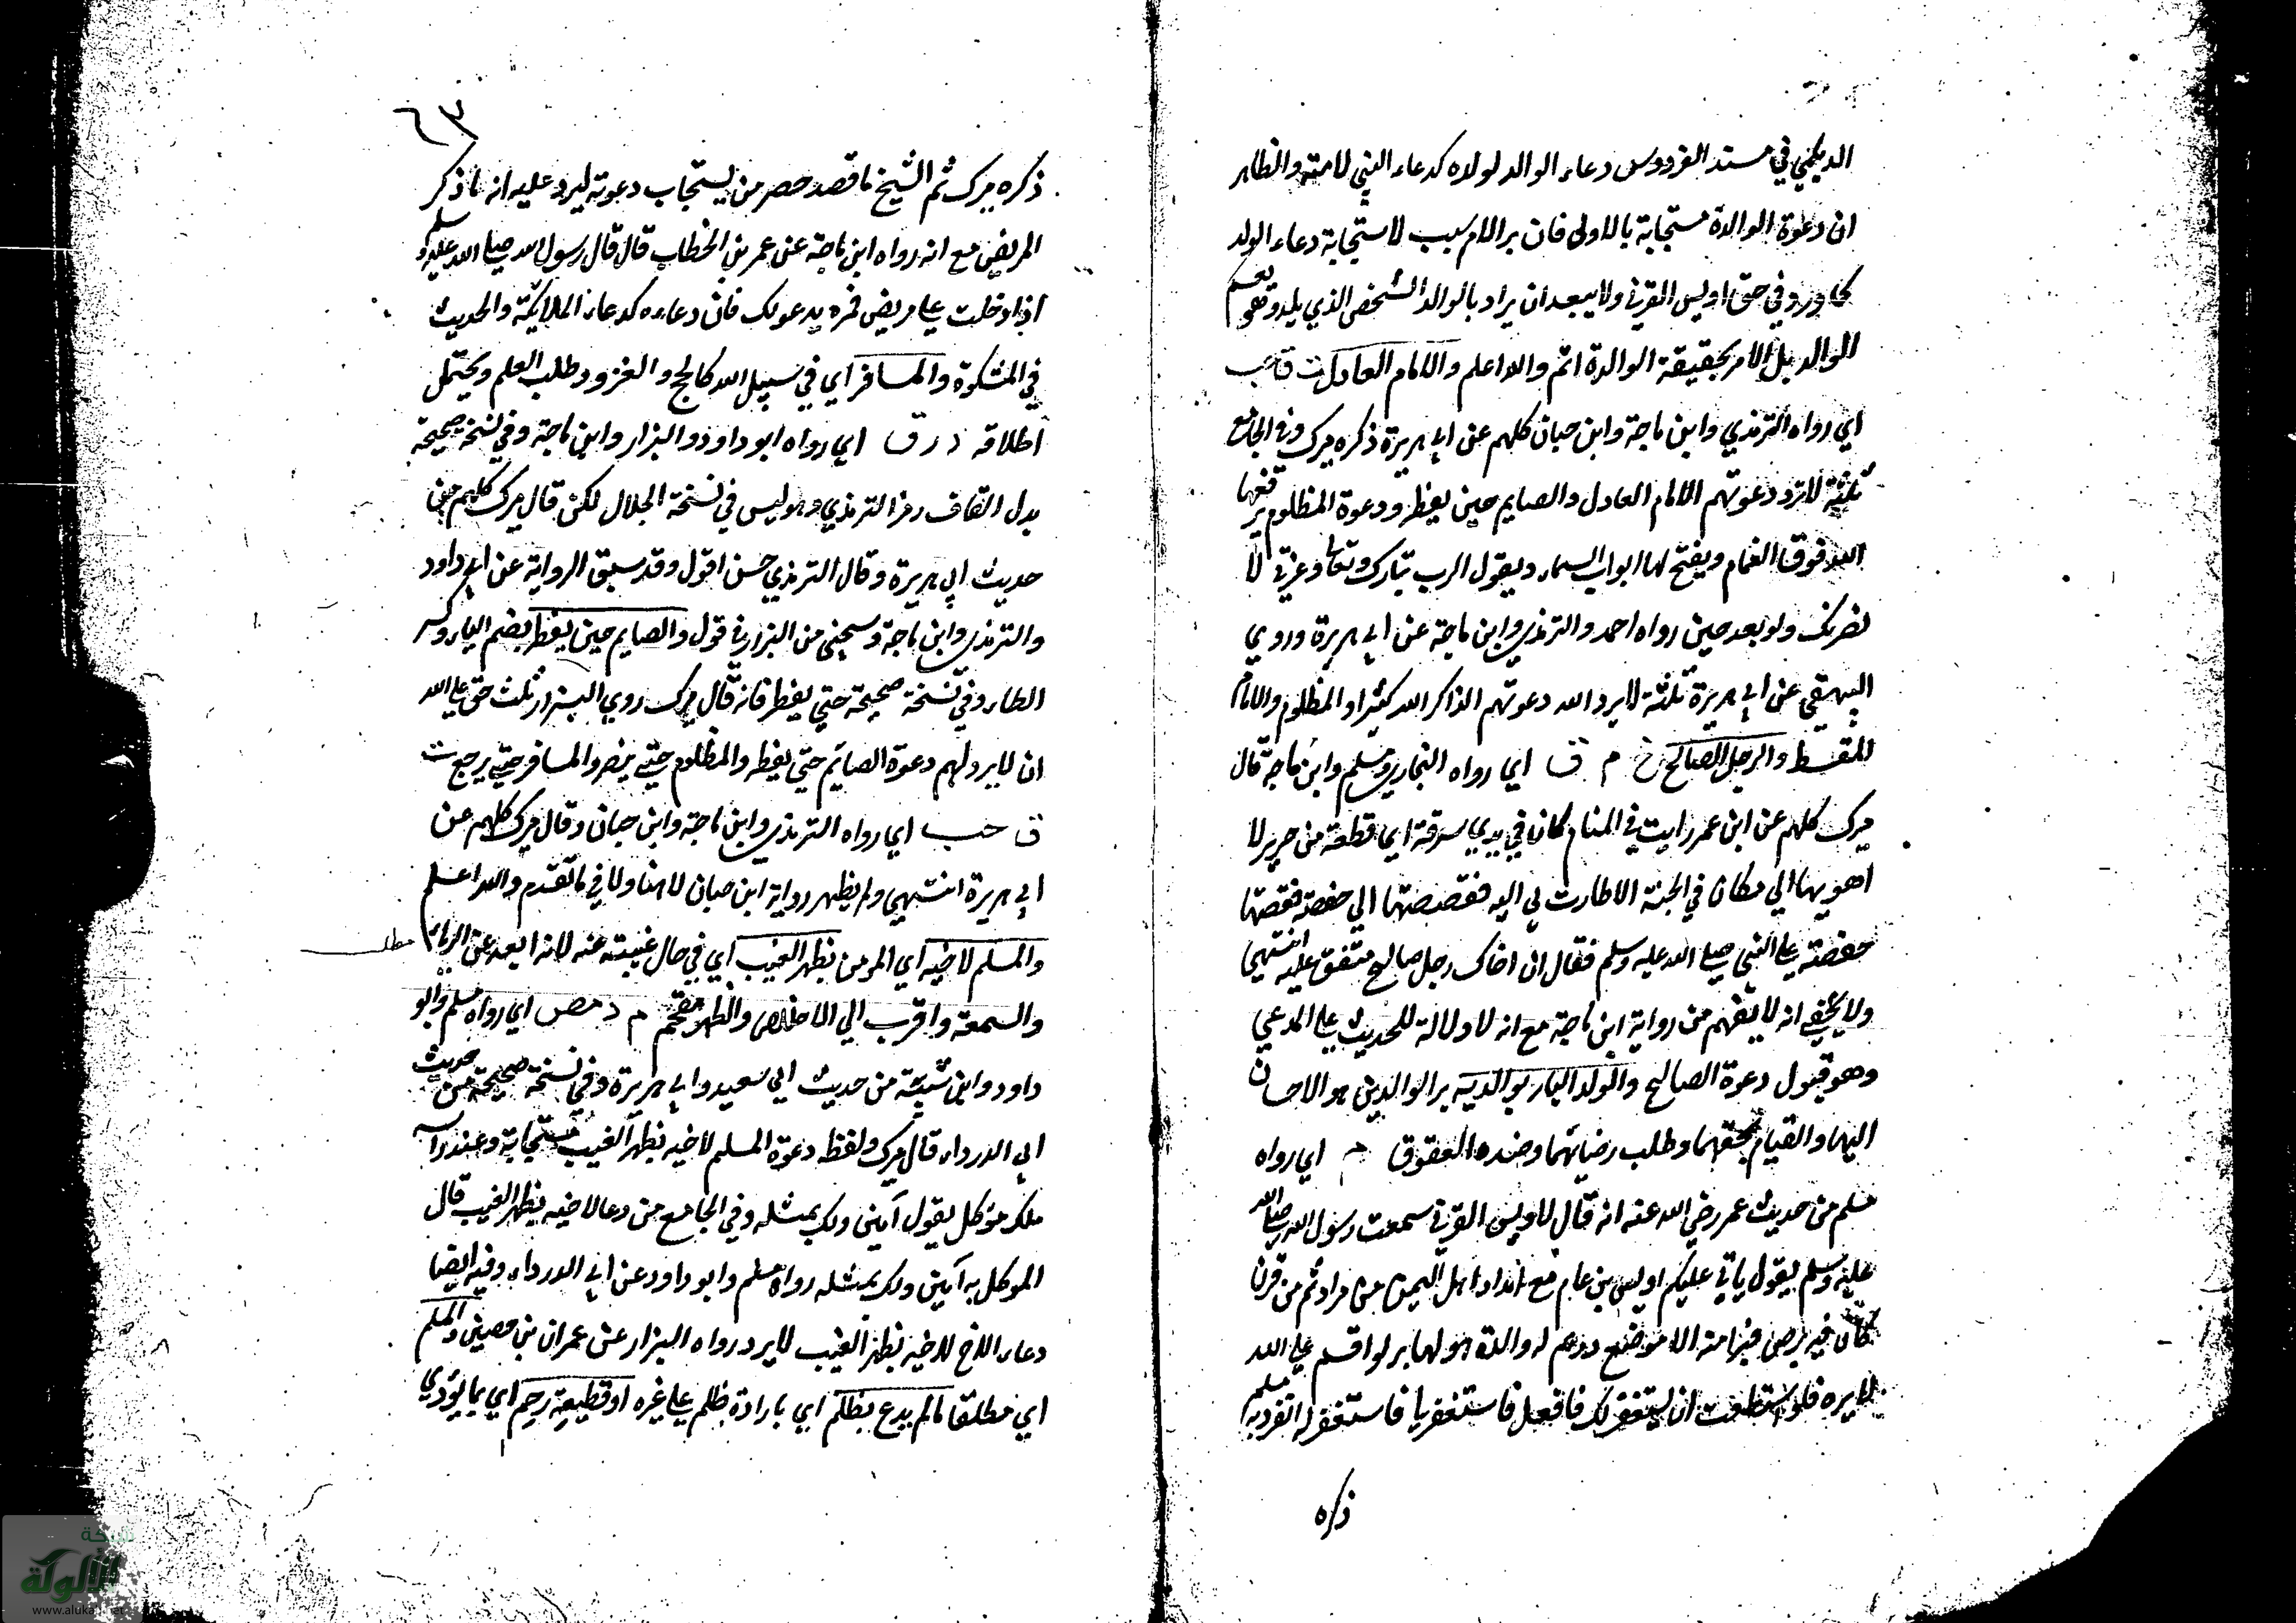 الديلمي في مسند الفردوس دعاء الوالد لولاده كدعاء النبي لامته والظاهر
ان دعوة الوالدة مستجابة بالاولى فان بر الام سبب لاستجابة دعاء الولد
كما ورد في حق اويس القرني ولا يبعد ان يراد بالوالد الشخص الذي يلد وهو يعم
الوالد بل الامر بحقيقة الوالدة اتم والله اعلم والامام العادل ت ق حب
اي رواه الترمذي وابن ماجة وابن حبان كلهم عن ابي هريرة ذكره ميرك وفي الجامع
ثلثة لا ترد دعوتهم الامام العادل والصايم حين يفطر ودعوة المظلوم يرفعها
الله فوق الغمام ويفتح لها ابواب السماء ويقول الرب تبارك وتعالى وعزتي لا
نصرنك ولو بعد حين رواه احمد والترمذي وابن ماجة عن ابي هريرة وروي
البيهقي عن ابي هريرة ثلثة لا يرد الله دعوتهم الذاكر الله كثيرا والمظلوم والامام
المقسط والرجل الصالح خ م ق اي رواه البخاري ومسلم وابن ماجة قال
ميرك كلهم عن ابن عمر رايت في المنام كان في يدي سرقة اي قطعة من حرير لا
اهوي بها الي مكان في الجنة الا طارت بي اليه فقصصتها الي حفصة فقصتها
حفصة علي النبي صلي الله عليه وسلم فقال ان اخاك رجل صالح متفق عليه انتهي
ولا يخفي انه لا يفهم من رواية ابن ماجة مع انه لا دلالة للحديث علي المدعي
وهو قبول دعوة الصالح والولد البار بوالديه بر الوالدين هو الاحسان
اليهما والقيام بحقهما وطلب رضائهما وضده العقوق م اي رواه
مسلم من حديث عمر رضي الله عنه انه قال لاويس القرني سمعت رسول الله صلي الله
عليه وسلم يقول ياتي عليكم اويس بن عامر مع امداد اهل اليمن من مراد ثم من قرن
كان فيه برص فبرا منه الا موضع درهم له والدة هو لها بر لو اقسم علي الله
لابره فلو استطعت ان يستغفر لك فافعل فاستغفر لي فاستغفر له انفرد به مسلم
ذكره
٦٣
ذكره ميرك ثم الشيخ ما قصد حصر من يستجاب دعوته ليرد عليه انه ما ذكر
المريض مع انه رواه ابن ماجة عن عمر بن الخطاب قال قال رسول الله صلي الله عليه وسلم
اذا دخلت علي مريض فمره يدعو لك فان دعاءه كدعاء الملائكة والحديث
في المشكوة والمسافر اي في سبيل الله كالحج والغزو وطلب العلم ويحتمل
اطلاقه د ر ق اي رواه ابو داود والبزار وابن ماجة وفي نسخة صحيحة
بدل القاف رمز الترمذي وهو ليس في نسخة الجلال لكن قال ميرك كلهم من
حديث ابي هريرة وقال الترمذي حسن اقول وقد سبق الرواية عن ابي داود
والترمذي وابن ماجة وسيجئ من البزار في قول والصايم حين يفطر بضم الياء وكسر
الطاء وفي نسخة صحيحة حتي يفطر فانه قال ميرك روي البزار ثلث حق علي الله
ان لا يرد لهم دعوة الصايم حتي يفطر والمظلوم حتي ينصر والمسافر حتي يرجع ت
ق حب اي رواه الترمذي وابن ماجة وابن حبان وقال ميرك كلهم عن
ابي هريرة انتهي ولم يظهر رواية ابن حبان لا هنا ولا في ما تقدم والله اعلم
والمسلم لاخيه اي المومن بظهر الغيب اي في حال غيبته عنه لانه ابعد عن الرياء
مطلب
والسمعة واقرب الي الاخلاص والظهر مقحم م د مص اي رواه مسلم وابو
داود وابن شيبة من حديث ابي سعيد وابي هريرة وفي نسخة صحيحة من حديث
ابي الدرداء قال ميرك ولفظه دعوة المسلم لاخيه بظهر الغيب مستجابة وعند راسه
ملك موكل يقول آمين ولك بمثله وفي الجامع من دعا لاخيه بظهر الغيب قال
الموكل به آمين ولك بمثله رواه مسلم وابو داود عن ابي الدرداء وفيه ايضا
دعاء الاخ لاخيه بظهر الغيب لا يرد رواه البزار عن عمران بن حصين والمسلم
اي مطلقا ما لم يدع بظلم اي بارادة ظلم علي غيره او قطيعة رحم اي بما يؤدي
شبكة
الألوكة